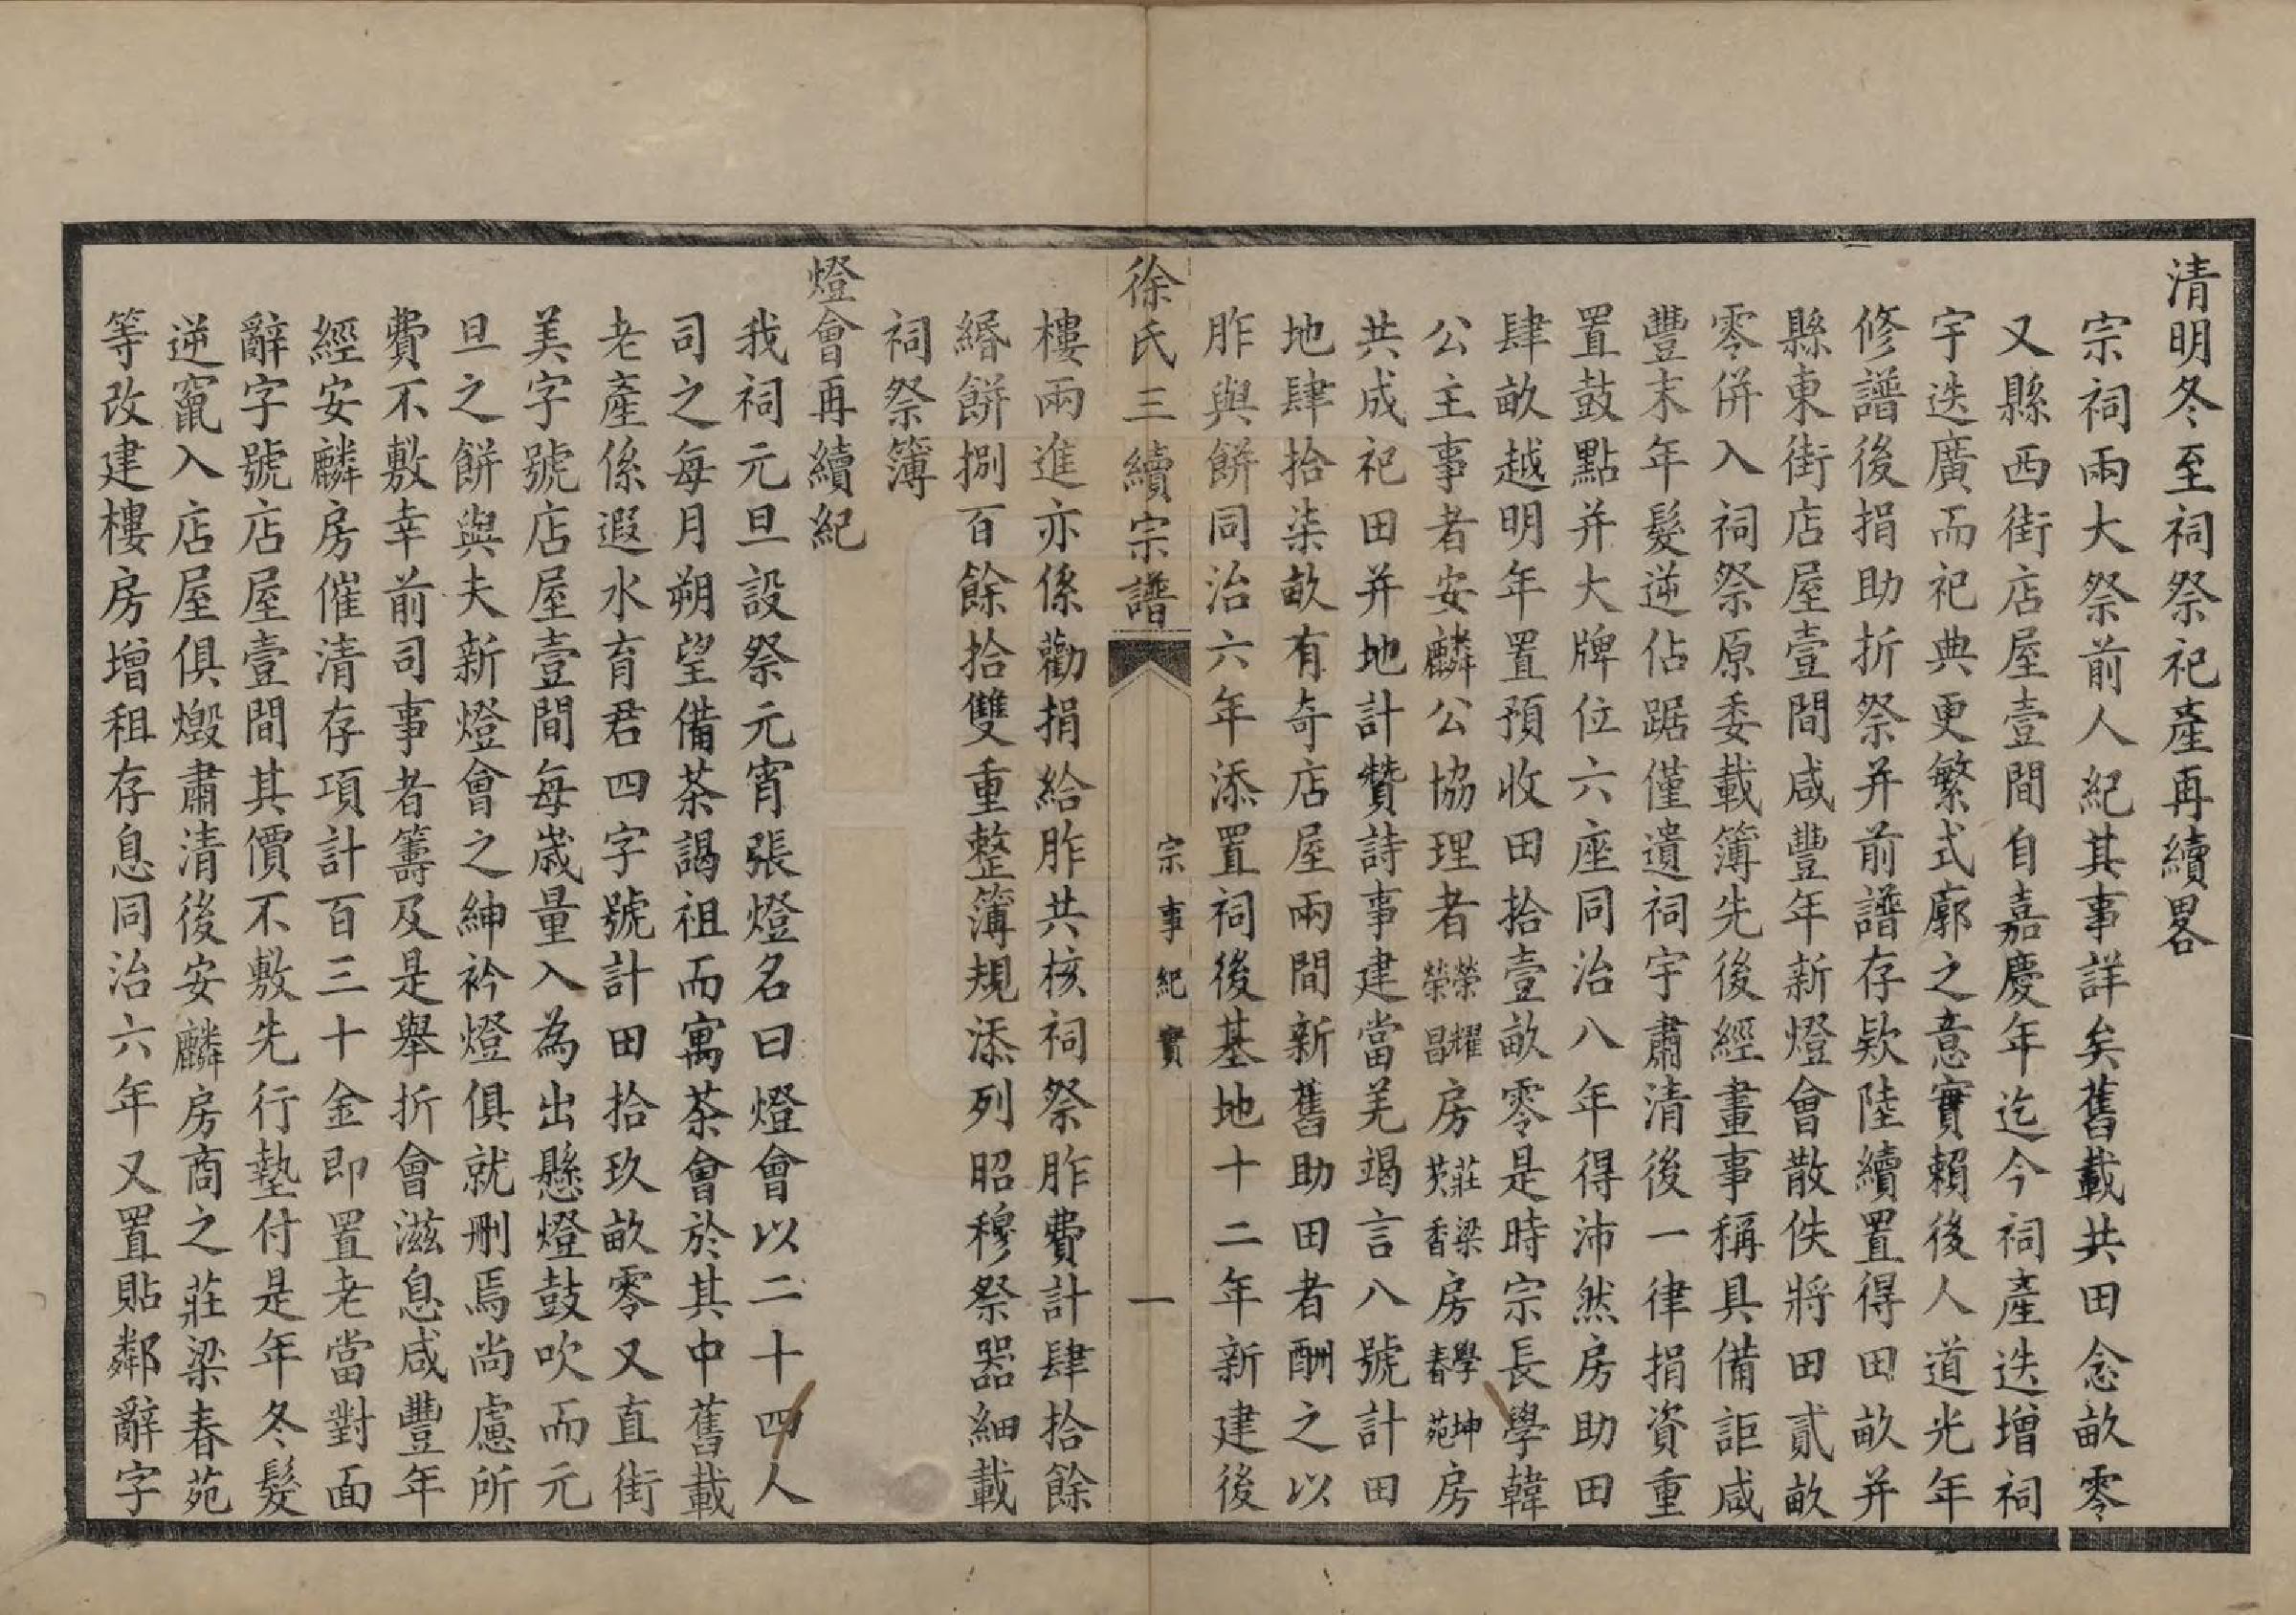 清明冬至祠祭祀產再續畧
宗祠兩大祭前人紀其事詳矣舊載共田念畝零
又縣西街店屋壹間自嘉慶年迄今祠產迭增祠
宇迭廣而祀典更繁式廓之意實賴後人道光年
修譜後捐助折祭并前譜存欵陸續置得田畝并
縣東街店屋壹間咸豐年新燈會散佚將田貳畝
零併入祠祭原委載簿先後經畫事稱具備詎咸
豐末年髮逆佔踞僅遺祠宇肅清後一律捐資重
置鼓點并大牌位六座同治八年得沛然房助田
肆畝越明年置預收田拾壹畝零是時宗長學韓
公主事者安麟公協理者榮耀榮昌房莊梁芖香房學坤春苑房
共成祀田并地計贊詩事建當羌竭言八號計田
地肆拾柒畝有奇店屋兩間新舊助田者酬之以
胙與餅同治六年添置祠後基地十二年新建後
徐氏三續宗譜 宗事紀實 一
樓兩進亦係勸捐給胙共核祠祭胙費計肆拾餘
緡餅捌百餘拾雙重整簿規添列昭穆祭器細載
祠祭簿
燈會再續紀
我祠元旦設祭元宵張燈名曰燈會以二十四人
司之每月朔望備茶謁祖而寓茶會於其中舊載
老產係遐水育君四字號計田拾玖畝零又直街
美字號店屋壹間每歲量入為出懸燈鼓吹而元
旦之餅與夫新燈會之紳衿燈俱就刪焉尚慮所
費不敷幸前司事者籌及是舉折會滋息咸豐年
經安麟房催清存項計百三十金即置老當對面
辭字號店屋壹間其價不敷先行墊付是年冬髮
逆竄入店屋俱燬肅清後安麟房商之莊梁春苑
等改建樓房增租存息同治六年又置貼鄰辭字